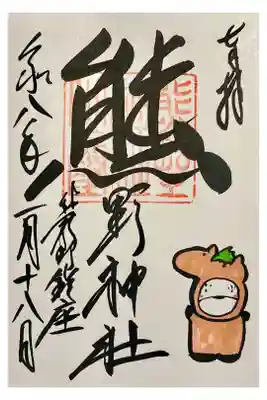 奉拝
熊野神社
鎮座
令和八年一月十八日